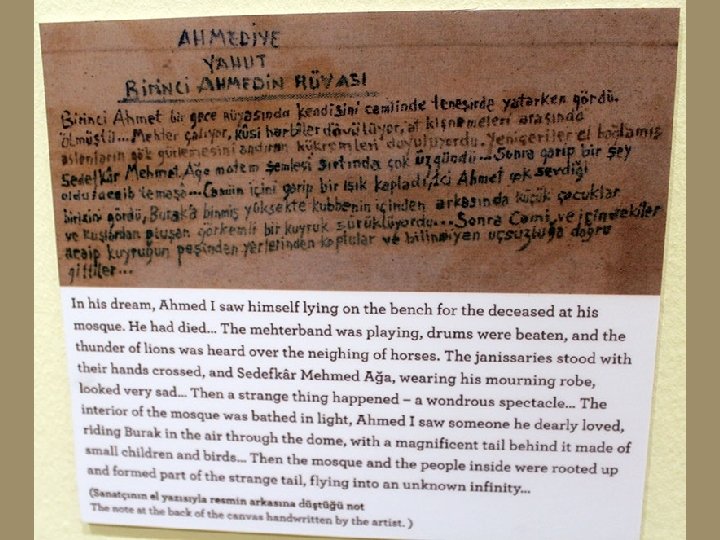 AHMEDİYE
YAHUT
BİRİNCİ AHMEDİN RÜYASI
Birinci Ahmet bir gece rüyasında kendisini camiinde teneşirde yatarken gördü.
ölmüştü... Mehter çalıyor, kûsi harbîler dövülüyor, at kişnemeleri arasında
aslanların gök gürlemesini andıran hükremileri duyuluyordu. Yeniçeriler el bağlamış
Sedefkâr Mehmet Ağa matem şemlesi sırtında çok üzgündü... Sonra garip bir şey
oldu acaib temaşa... Camiin içini garip bir ışık kapladı, Ahmet çok sevdiği
birisini gördü, Buraka binmiş yüksekte kubbenin içinden arkasında küçük çocuklar
ve kuşlardan oluşan görkemli bir kuyruk sürüklüyordu... Sonra Cami ve içindekiler
acaip kuyruğun peşinden yerlerinden koptular ve bilinmiyen uçsuzluğa doğru
gittiler...
In his dream, Ahmed I saw himself lying on the bench for the deceased at his
mosque. He had died... The mehterband was playing, drums were beaten, and the
thunder of lions was heard over the neighing of horses. The janissaries stood with
their hands crossed, and Sedefkâr Mehmed Ağa, wearing his mourning robe,
looked very sad... Then a strange thing happened – a wondrous spectacle... The
interior of the mosque was bathed in light, Ahmed I saw someone he dearly loved,
riding Burak in the air through the dome, with a magnificent tail behind it made of
small children and birds... Then the mosque and the people inside were rooted up
and formed part of the strange tail, flying into an unknown infinity...
(Sanatçının el yazısıyla resmin arkasına düştüğü not
The note at the back of the canvas handwritten by the artist. )